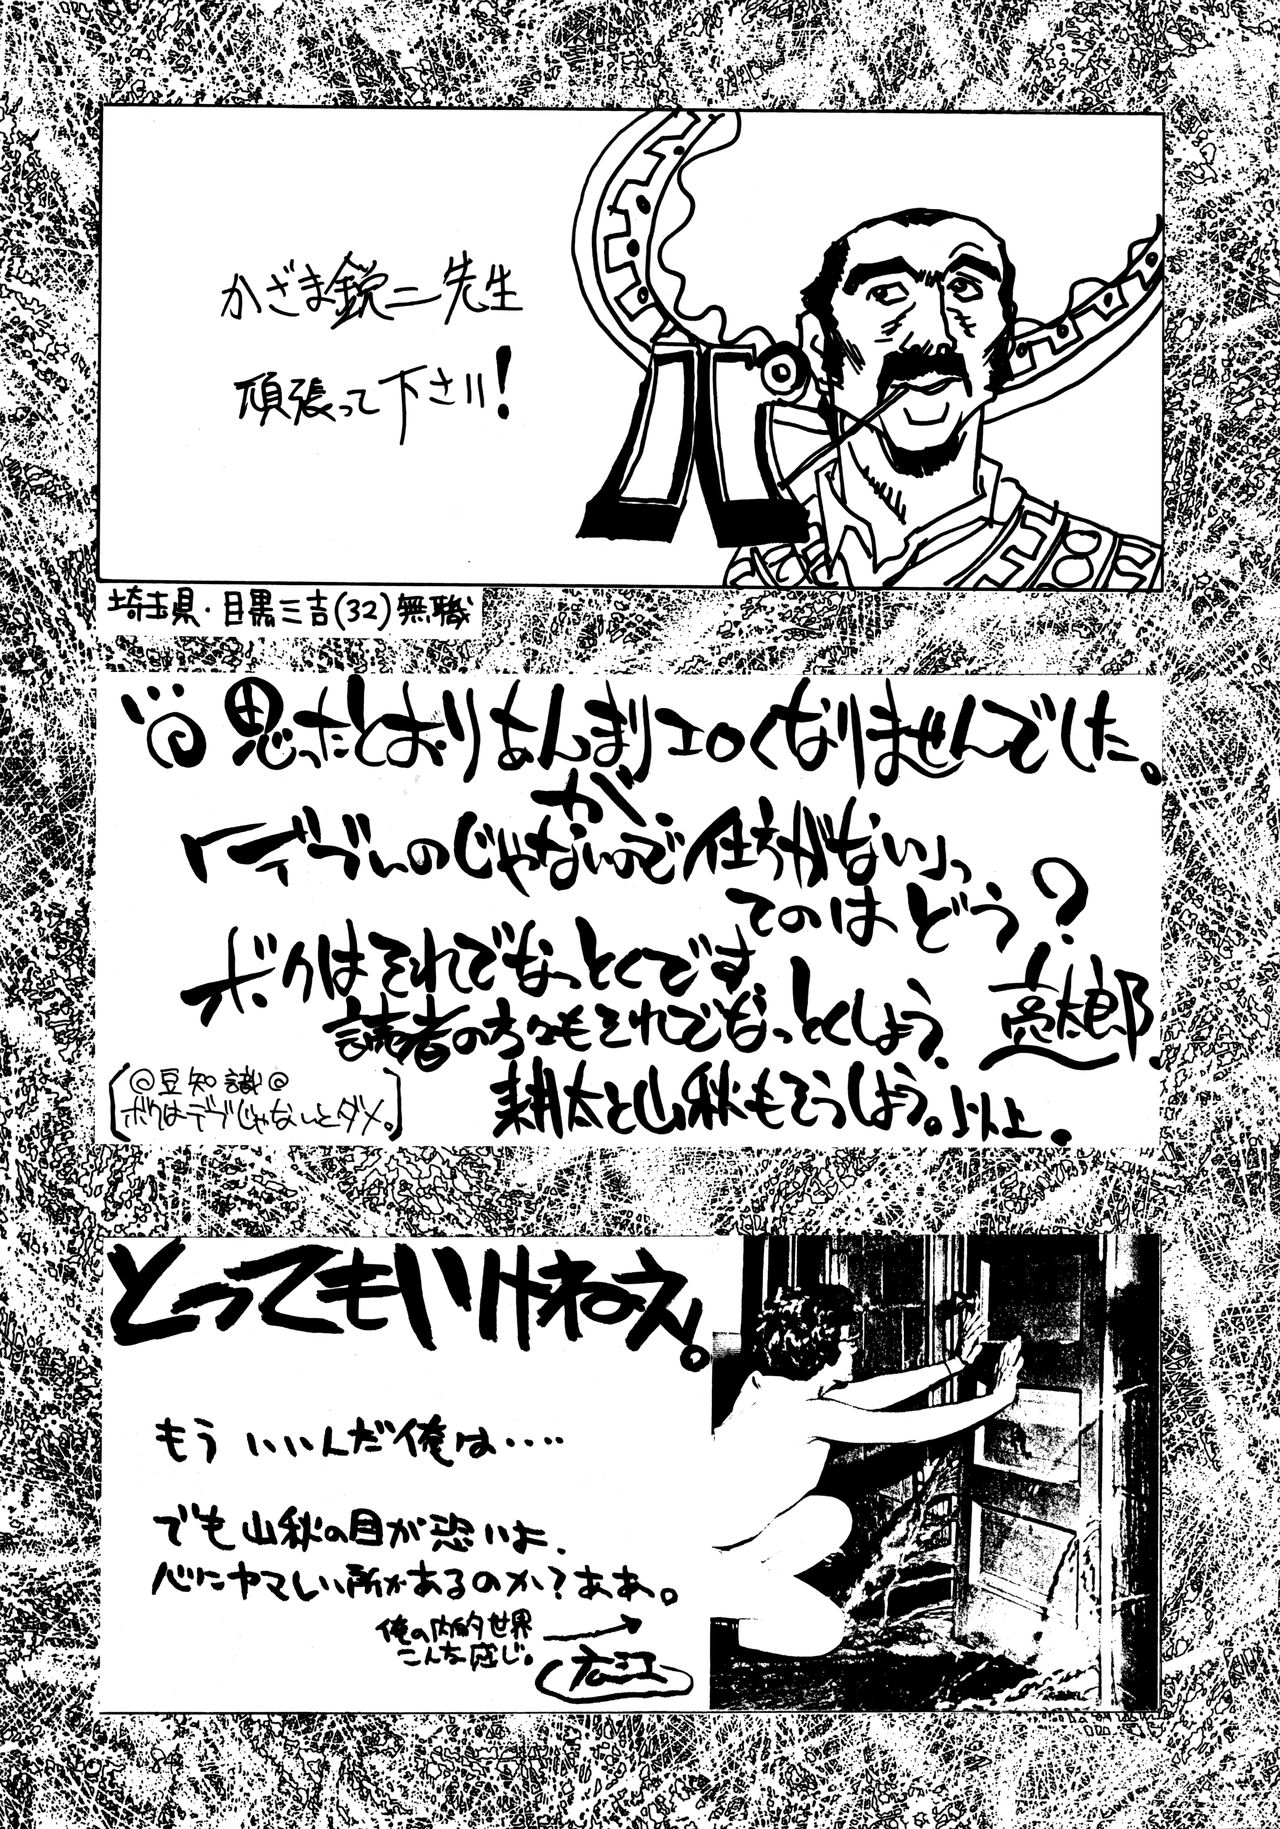 かざま鋭二先生
頑張って下さい!
埼玉県・目黒三吉(32)無職
思ったとおりあんまりエロくなりませんでした。
が
「デブいのじゃないので仕方がない」っ
てのはどう?
ボクはそれでなっとくです。
読者の方々もそれでなっとくしよう。
耕太と山秋もそうしよう。以上。
亮太郎
◎豆知識◎
ボクはデブじゃないとダメ。
とってもいけねえ。
もういいんだ俺は‥‥
でも山秋の目が恐いよ。
心にヤマしい所があるのか?ああ。
俺の内的世界
こんな感じ。